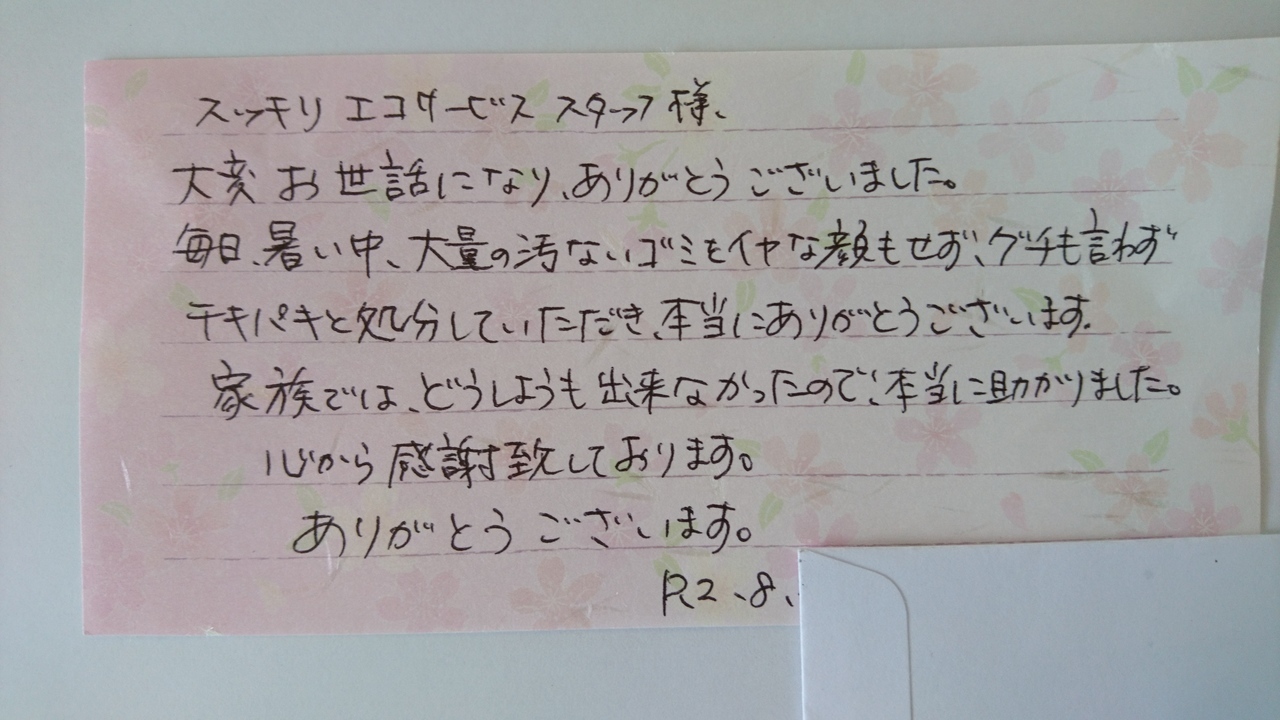 スッキリ エコサービス スタッフ様、
大変お世話になり、ありがとうございました。
毎日、暑い中、大量の汚ないゴミをイヤな顔もせず、グチも言わず
テキパキと処分していただき、本当にありがとうございます。
家族では、どうしようも出来なかったので、本当に助かりました。
心から感謝致しております。
ありがとうございます。
R2、8、